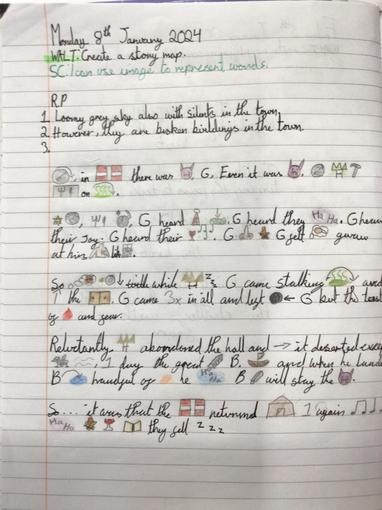 Monday 8th January 2024
WALT: Create a story map.
SC: I can use image to represent words.
R.P
1. Loomy grey sky also with silents in the town
2. However, they are broken buildings in the town.
3.
in there was G. Even it was
on
G heard . G heard they Ha Ha . G heard
their joy. G heard their . G G felt
at him
So while z z G came stalking and
the . G came 3x in all and left ← G but the
of and
Reluctantly abandoned the hall and → it deserted
1 day the great B. and when he
B of B will slay the
So.... it was that the returned 1 again
Ha Ha they fell z z z